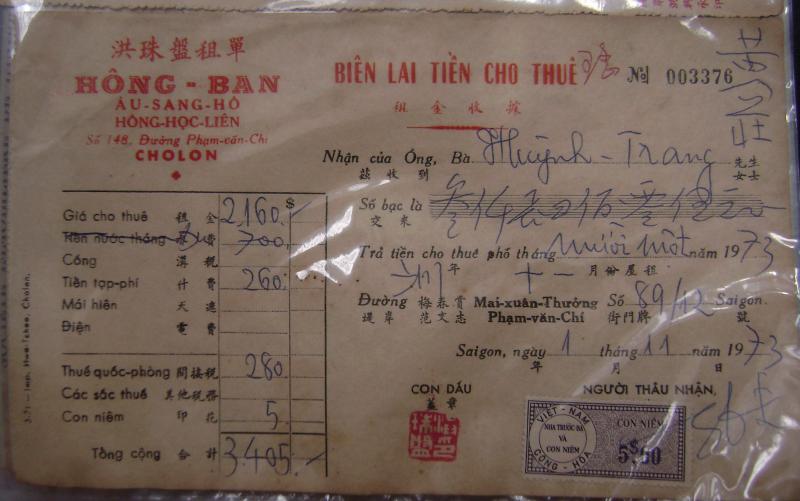 洪珠盤租單
HỒNG - BAN
ÂU-SANG-HÔ
HỒNG-HỌC-LIÊN
Số 148, Đường Phạm-văn-Chí
CHOLON
BIÊN LAI TIỀN CHO THUÊ
№ 003376
租金收據
Nhận của Ông, Bà Huỳnh-Trang 先生
茲收到 女士
Số bạc là
交來 叁仟肆佰零伍元
Trả tiền cho thuê phố tháng mười một năm 1973
年 十一 月份屋租
Đường 梅春賞 Mai-xuân-Thưởng Số 89/12 Saigon.
堤岸 范文志 Phạm-văn-Chí 街門牌 號
Saigon, ngày 1 tháng 11 năm 1973
年 月 日
CON DẤU
蓋章
NGƯỜI THÂU NHẬN,
$
Giá cho thuê 租金 2,160.
Tiền nước tháng 水費 700,
Cống 溝稅
Tiền tạp-phí 什費 260.
Mái hiên 天遮
Điện 電費
Thuế quốc-phòng 間接稅 280.
Các sắc thuế 其他稅務
Con niêm 印花 5.
Tổng cộng 合計 3.405.
3-71 — Imp. Hoa-Tchoo, Cholon.
VIỆT-NAM
CỘNG-HÒA
NHA TRƯỚC BẠ
VÀ
CON NIÊM
CON NIÊM
5$00